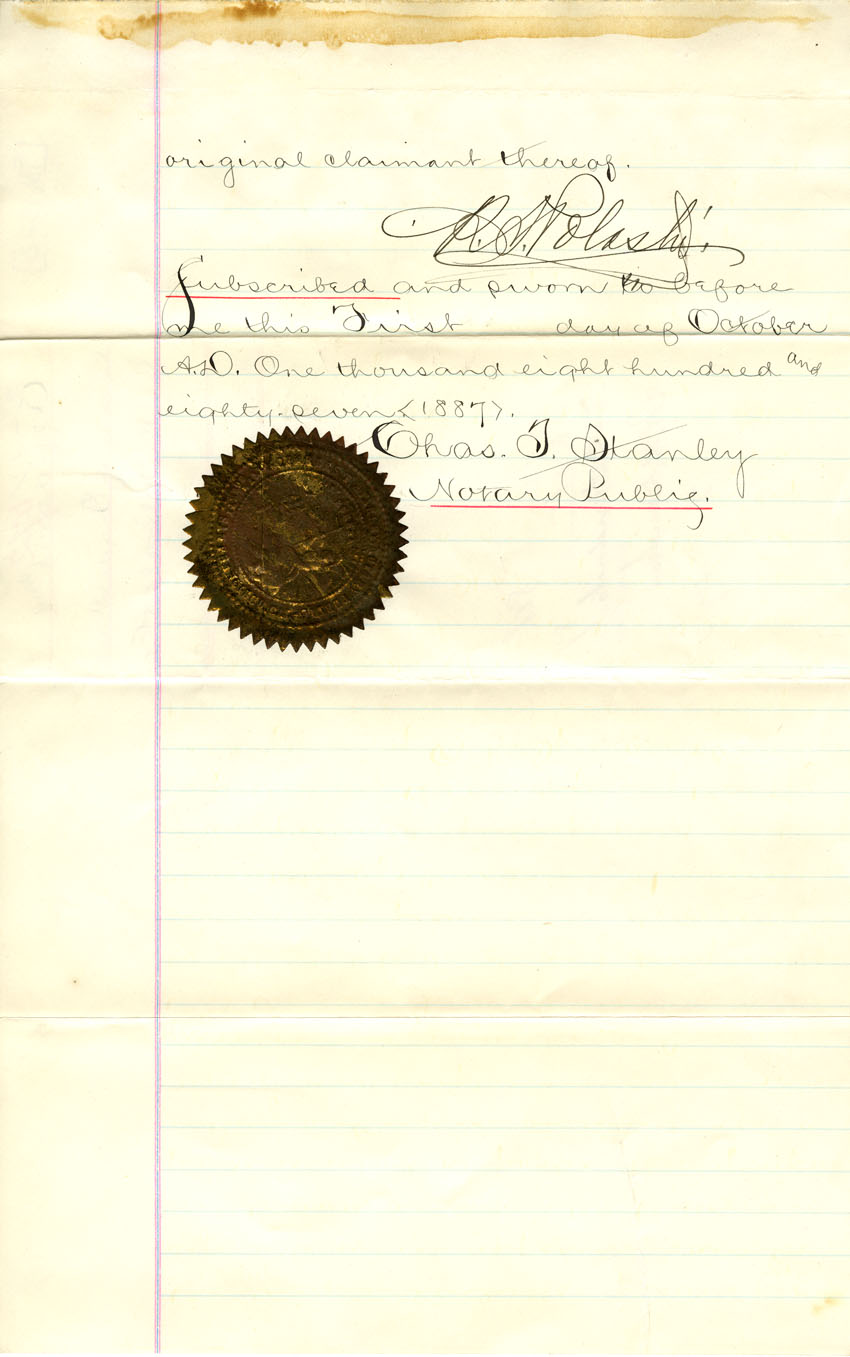 original claimant thereof.
Polaski.
Subscribed and sworn to before
me this First day of October
A.D. One thousand eight hundred and
eighty-seven (1887).
Chas. T. Stanley
Notary Public.